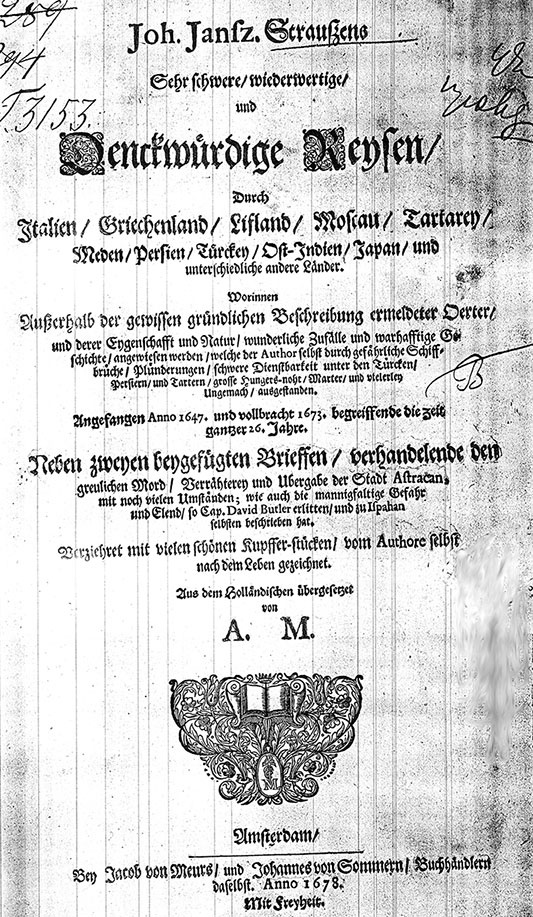 289
294
T 3153.
Joh. Janſz. Straußens
Sehr ſchwere/ wiederwertige/
und
Denckwürdige Reyſen/
Durch
Italien/ Griechenland/ Lifland/ Moſcau/ Tartarey/
Meden/ Perſien/ Türckey/ Oſt-Indien/ Japan/ und
unterſchiedliche andere Länder.
Worinnen
Außerhalb der gewiſſen gründlichen Beſchreibung ermeldeter Oerter/
und derer Eygenſchafft und Natur/ wunderliche Zufälle und warhafftige Ge-
ſchichte/ angewieſen werden/ welche der Author ſelbſt durch gefährliche Schiff-
brüche/ Plünderungen/ ſchwere Dienſtbarkeit unter den Türcken/
Perſiern/ und Tartern/ groſſe Hungers-noht/ Marter/ und vielerley
Ungemach/ ausgeſtanden.
Angefangen Anno 1647. und vollbracht 1673. begreiffende die zeit
gantzer 26. Jahre.
Neben zweyen beygefügten Brieffen/ verhandelende den
greulichen Mord/ Verrähterey und Ubergabe der Stadt Aſtracan,
mit noch vielen Umſtänden; wie auch die mannigfaltige Gefahr
und Elend/ ſo Cap. David Butler erlitten/ und zu Iſpahan
ſelbſten beſchrieben hat.
Verziehret mit vielen ſchönen Kupffer-ſtücken/ vom Authore ſelbſt
nach dem Leben gezeichnet.
Aus dem Holländiſchen übergeſetzet
von
A. M.
Amſterdam/
Bey Jacob von Meurs/ und Johannes von Sommern/ Buchhändlern
daſelbſt. Anno 1678.
Mit Freyheit.